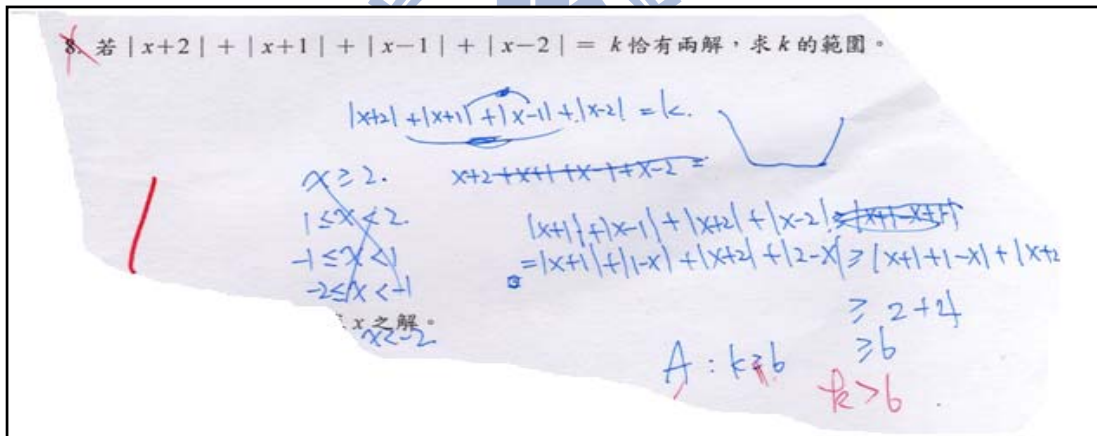 8. 若 | x+2 | + | x+1 | + | x−1 | + | x−2 | = k 恰有兩解，求 k 的範圍。
|x+2| + |x+1| + |x-1| + |x-2| = k.
x ≥ 2. x+2+x+1+x-1+x-2 =
1 ≤ x < 2.
|x+1| + |x-1| + |x+2| + |x-2| ≥ |x+1-x+1|
-1 ≤ x < 1
= |x+1| + |1-x| + |x+2| + |2-x| ≥ |x+1+1-x| + |x+2
-2 ≤ x < -1
≥ 2+4
x 之解。
x < -2
≥ 6
A : k ≥ 6
k > 6